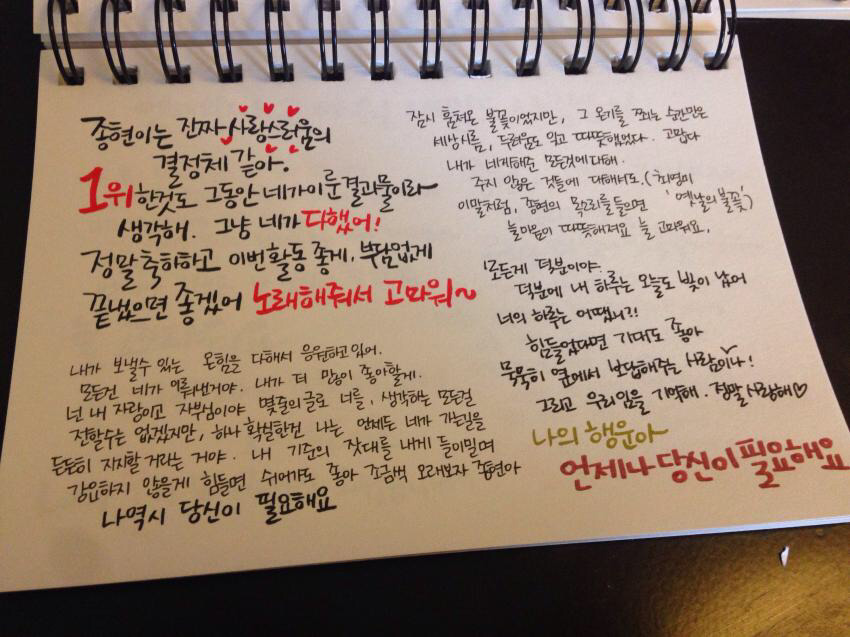 종현이는 진짜 사랑스러움의
결정체 같아.
1위 한것도 그동안 네가 이룬 결과물이라
생각해. 그냥 네가 다했어!
정말 축하하고 이번 활동 좋게, 부담없게
끝냈으면 좋겠어 노래해줘서 고마워~
내가 보낼수 있는 온힘을 다해서 응원하고 있어.
모든건 네가 이뤄낸거야. 내가 더 많이 좋아할게.
넌 내 자랑이고 자부심이야 몇줄의 글로 너를, 생각하는 모든걸
전할수는 없겠지만, 하나 확실한건 나는 언제든 네가 가는길을
든든히 지지할 거라는 거야. 내 기준의 잣대를 네게 들이밀며
강요하지 않을게 힘들면 쉬어가도 좋아 조금씩 오래보자 종현아
나 역시 당신이 필요해요
잠시 훔쳐온 불꽃이었지만, 그 온기를 쬐는 순간만은
세상시름, 두려움도 잊고 따뜻했었다. 고맙다
내가 네게해준 모든것에 대해.
주지 않은 것들에 대해서도. (최영미
이말처럼, 종현의 목소리를 들으면 '옛날의 불꽃')
늘 마음이 따뜻해져요 늘 고마워요.
모든게 덕분이야.
덕분에 내 하루는 오늘도 빛이 났어
너의 하루는 어땠니?!
힘들었다면 기대도 좋아
묵묵히 옆에서 보답해주는 사람이니!
그리고 우리있음을 기억해. 정말 사랑해♡
나의 행운아
언제나 당신이 필요해요